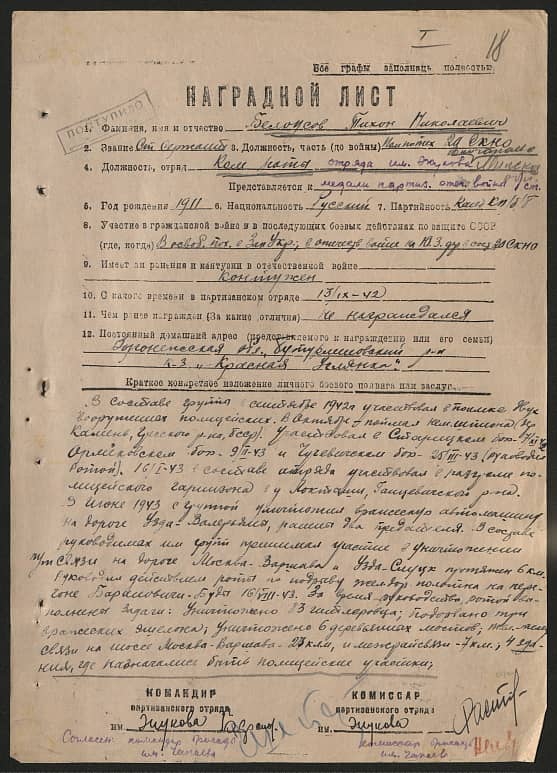 I 18
Все графы заполнять полностью.
НАГРАДНОЙ ЛИСТ
ПОСТУПИЛО
1. Фамилия, имя и отчество Белоусов Тихон Николаевич
2. Звание Ст. Сержант 3. Должность, часть (до войны)
4. Должность, отряд Ком. роты отряда им. Жукова
Представляется к медали партиз. отеч. войны ст.
5. Год рождения 1911 6. Национальность Русский 7. Партийность
8. Участие в гражданской войне и в последующих боевых действиях по защите СССР
(где, когда) В освоб. пох. в Зап Укр; в отечеств. войне на Ю.З.
9. Имеет ли ранения и контузии в отечественной войне
Контужен
10. С какого времени в партизанском отряде 13/IX-42
11. Чем ранее награжден (За какие отличия) Не награждался
12. Постоянный домашний адрес (представляемого к награждению или его семьи)
Воронежская обл., Бутурлиновский р-н
к-з "Красная
Краткое конкретное изложение личного боевого подвига или заслуг
В составе группы в сентябре 1942г участвовал в поимке двух
вооружённых полицейских. В Октябре - поимка
Камень, р-на, БССР). Участвовал в Старицком бою
бою 9/II-43 и бою 25/III-43 (руководил
ротой). 16/I-43 в составе отряда участвовал в разгроме по-
лицейского гарнизона в м Локтыши, Ганцевичский р-на.
В Июне 1943 с группой уничтожил вражескую автомашину
на дороге Узда-Валерьяны, два предателя. В составе
руководимых им групп принимал участие в уничтожении
связи на дороге Москва-Варшава и Узда-Слуцк протяжен. 6 км.
Руководил действием роты по подрыву желдор полотна на пере-
гоне Барановичи-Буды 16/VIII-43. За время руководства ротой вы-
полнены задачи: Уничтожено 83 гитлеровца; Подорвано три
вражеских эшелона; Уничтожено 6 деревянных мостов;
связи на шоссе Москва-Варшава- км, и межрайсвязи - 7 км; 4 зда-
ния, где назначались быть полицейские участки;
КОМАНДИР КОМИССАР
партизанского отряда партизанского отряда
им. Жукова им. Жукова
Согласен командир бригады комиссар бригады
им. Чапаева им. Чапаева